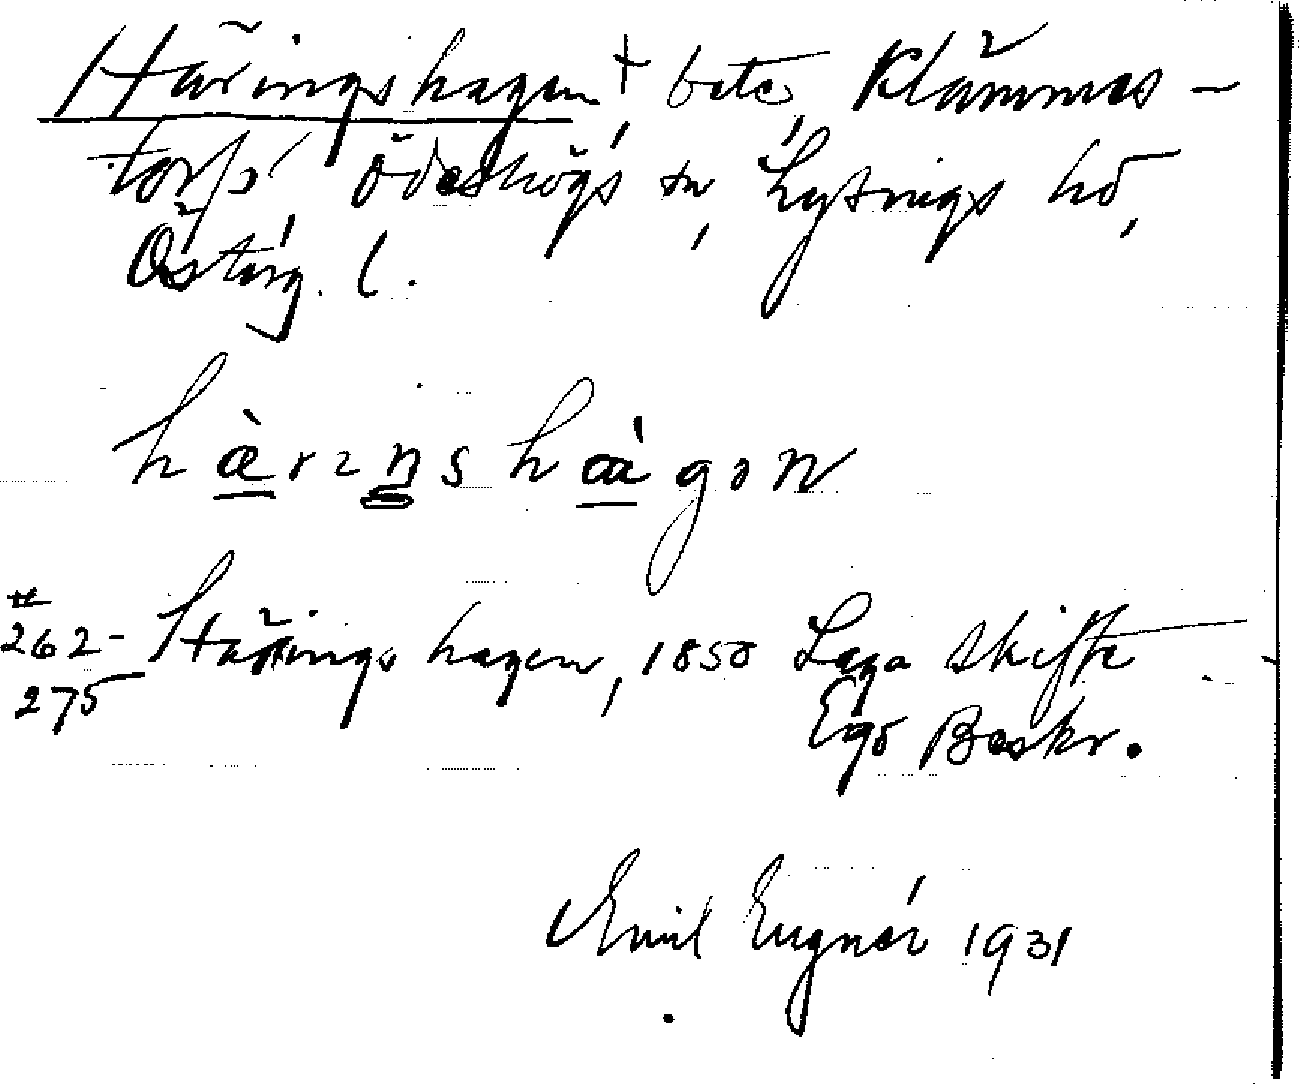 Häringshagen † bete, Klämmes-
torp, Ödeshögs sn, Lysings hd,
Österg. l.
hæ̀rɩŋshàgən
262- Häringshagen, 1850 Laga skifte
275 Ego Beskr.
Emil Eugnér 1931